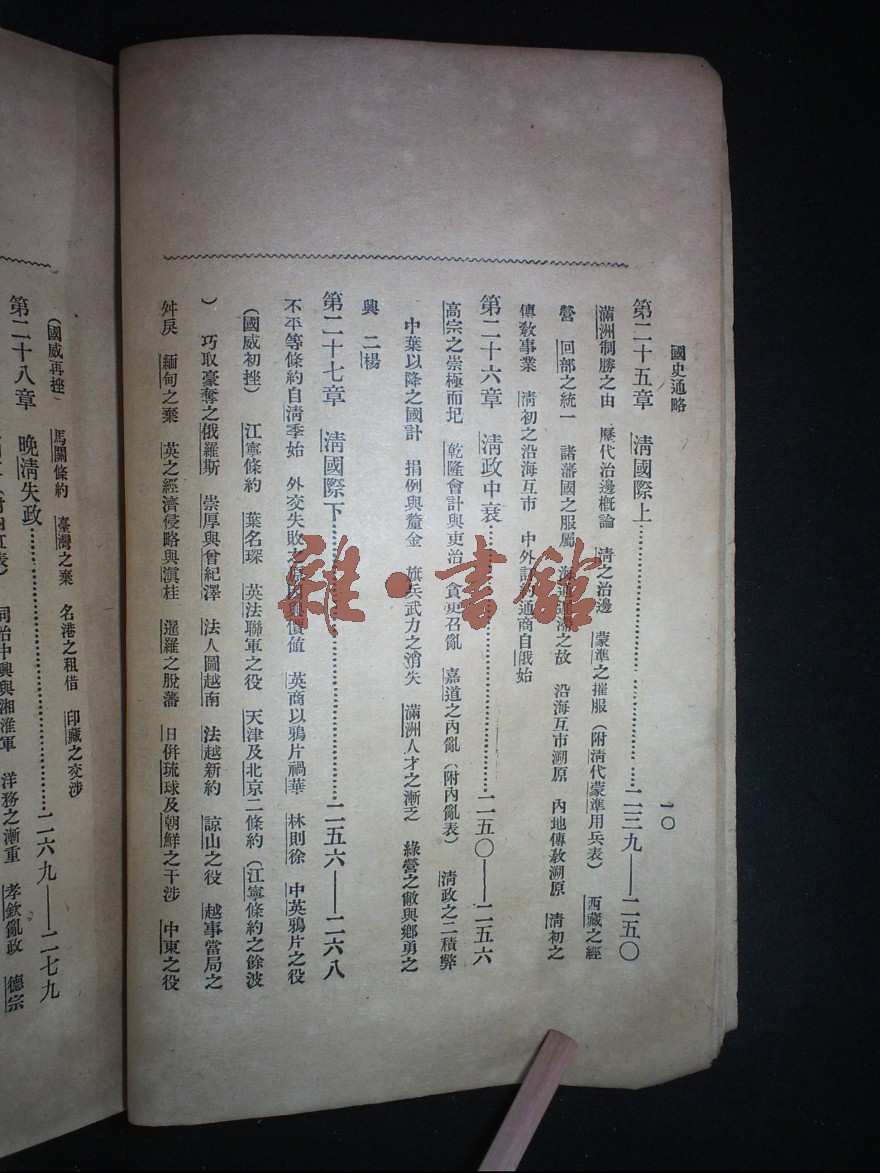 國史通略
一〇
第二十五章 淸國際上……二三九——二五〇
滿洲制勝之由 歷代治邊槪論 淸之治邊 蒙準之摧服（附淸代蒙準用兵表） 西藏之經
營 回部之統一 諸藩國之服屬 海通 之故 沿海互市溯原 內地傳敎溯原 淸初之
傳敎事業 淸初之沿海互市 中外 約通商自俄始
第二十六章 淸政中衰……二五〇——二五六
高宗之崇極而圮 乾隆會計與吏治 貪吏召亂 嘉道之內亂（附內亂表） 淸政之二積弊
中葉以降之國計 捐例與釐金 旗兵武力之消失 滿洲人才之漸乏 綠營之敝與鄉勇之
興 二楊
第二十七章 淸國際下……二五六——二六八
不平等條約自淸季始 外交失敗之原因與價値 英商以鴉片禍華 林則徐 中英鴉片之役
（國威初挫） 江寧條約 葉名琛 英法聯軍之役 天津及北京二條約（江寧條約之餘波
） 巧取豪奪之俄羅斯 崇厚與曾紀澤 法人圖越南 法越新約 諒山之役 越事當局之
舛戾 緬甸之棄 英之經濟侵略與滇桂 暹羅之脫藩 日併琉球及朝鮮之干涉 中東之役
（國威再挫） 馬關條約 臺灣之棄 名港之租借 印藏之交涉
第二十八章 晩淸失政……二六九——二七九
同治中興與湘淮軍 洋務之漸重 孝欽亂政 德宗
雜·書館